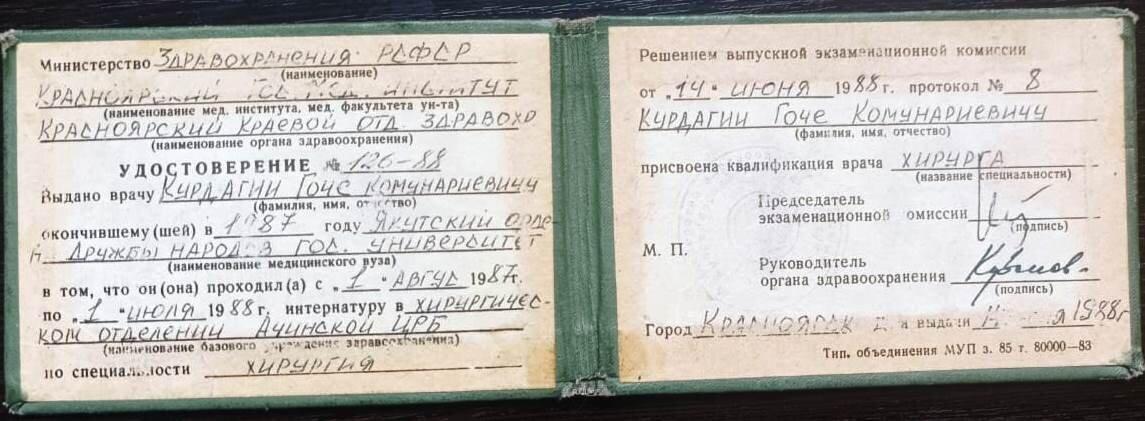 Министерство ЗДРАВОХРАНЕНИЯ РСФСР
(наименование)
КРАСНОЯРСКИЙ ГОС. МЕД. ИНСТИТУТ
(наименование мед. института, мед. факультета ун-та)
КРАСНОЯРСКИЙ КРАЕВОЙ ОТД. ЗДРАВОХР
(наименование органа здравоохранения)
УДОСТОВЕРЕНИЕ № 126-88
Выдано врачу КУРДАГИИ ГОЧЕ КОМУНАРИЕВИЧУ
(фамилия, имя, отчество)
окончившему (шей) в 1987 году ЯКУТСКИЙ ОРДЕ-
НА ДРУЖБЫ НАРОДОВ ГОС. УНИВЕРСИТЕТ
(наименование медицинского вуза)
в том, что он (она) проходил (а) с „1" АВГУС 1987г.
по „1" ИЮЛЯ 1988 г. интернатуру в ХИРУРГИЧЕС-
КОМ ОТДЕЛЕНИИ АЧИНСКОЙ ЦРБ
(наименование базового учреждения здравоохранения)
по специальности ХИРУРГИЯ
Решением выпускной экзаменационной комиссии
от „14" ИЮНЯ 1988 г. протокол № 8
КУРДАГИИ ГОЧЕ КОМУНАРИЕВИЧУ
(фамилия, имя, отчество)
присвоена квалификация врача ХИРУРГА
(название специальности)
Председатель
экзаменационной омиссии
(подпись)
М. П.
Руководитель
органа здравоохранения
(подпись)
Город КРАСНОЯРСК выдачи 1988г
Тип. объединения МУП з. 85 т. 80000—83